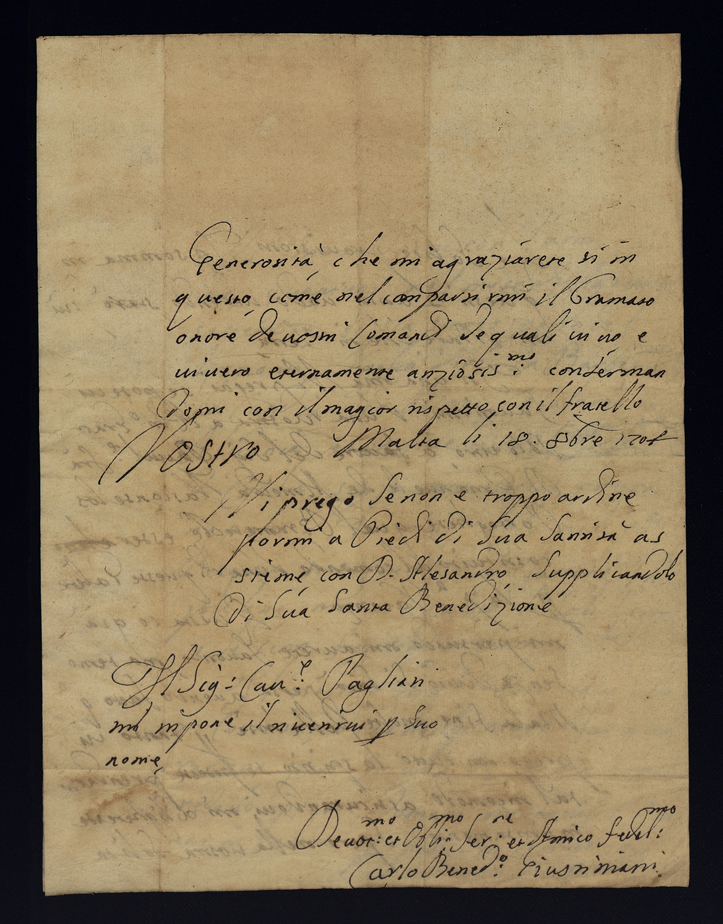 Generosità che mi agraziarete si in
questo, come nel conparsirmi il bramato
onore de vostri Comandi de quali vivo e
vivero eternamente anziosis:mo conferman
domi con il magior rispetto con il fratello
Vostro Malta li 18. 8bre
Vi prego se non e troppo ardire
pormi a Piedi di Sua Santità as
sieme con D. Alesandro Supplicandolo
di Sua Santa Benedizione
Il Sig:r Cav:e Pagliari
mi inpone il riverirvi p suo
nome
Devot:mo et Obli:mo Ser:re et Amico fedel:mo
Carlo Bened:o Giustiniani